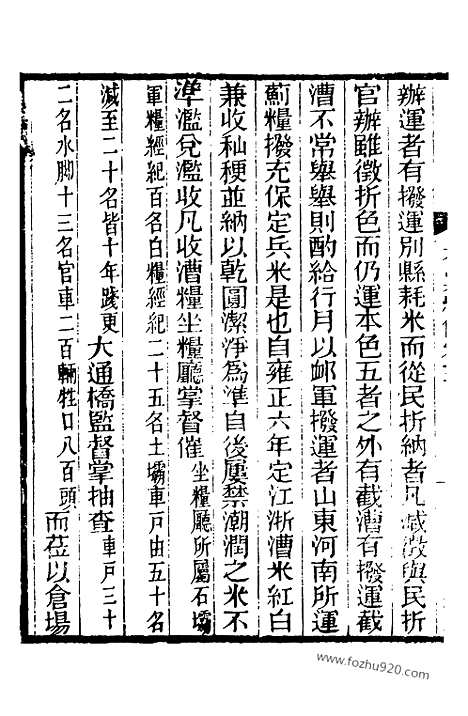 辦運者有撥運別縣耗米而從民折納者凡減徵與民折
官辦雖徵折色而仍運本色五者之外有截漕有撥運截
漕不常舉舉則酌給行月以䘏軍撥運者山東河南所運
薊糧撥充保定兵米是也自雍正六年定江浙漕米紅白
兼收秈稉並納以乾圓潔淨為準自後屢禁潮潤之米不
准濫兌濫收凡收漕糧坐糧廳掌督催坐糧廳所屬石壩
軍糧經紀百名白糧經紀二十五名土壩車戶由五十名
減至二十名皆十年踐更大通橋監督掌抽查車戶三十
二名水脚十三名官車二百輛牲口八百頭而莅以倉場
www.fozhu920.com